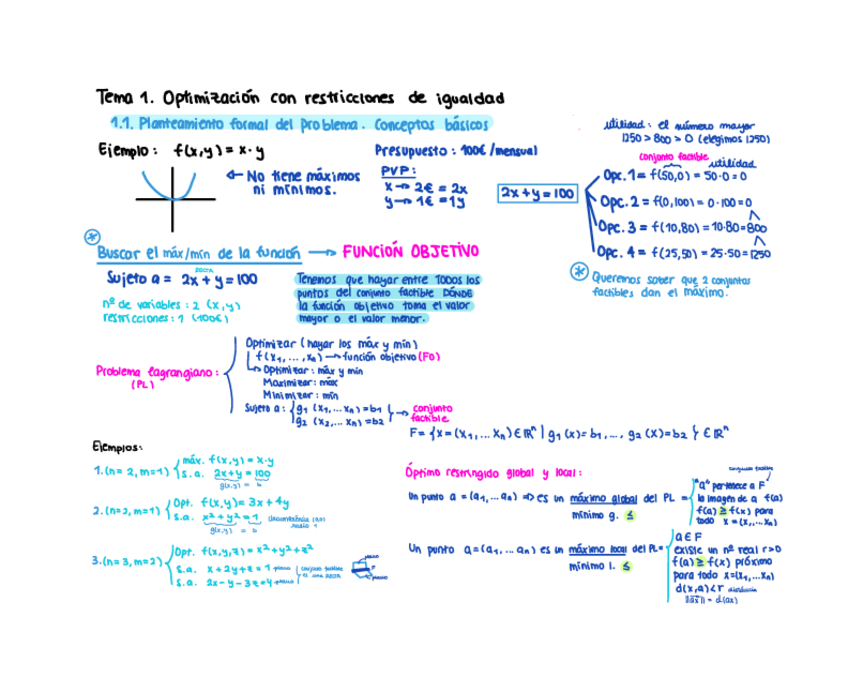 Tema 1. Optimización con restricciones de igualdad
1.1. Planteamiento formal del problema. Conceptos básicos
Ejemplo: f(x,y) = x·y
No tiene máximos
ni mínimos.
Presupuesto: 100€/mensual
PVP:
x → 2€ = 2x
y → 1€ = 1y
2x+y=100
utilidad: el número mayor
1250 > 800 > 0 (elegimos 1250)
conjunto factible
utilidad
Opc. 1 = f(50,0) = 50·0 = 0
Opc. 2 = f(0,100) = 0·100 = 0
Opc. 3 = f(10,80) = 10·80 = 800
Opc. 4 = f(25,50) = 25·50 = 1250
* Queremos saber que 2 conjuntos
factibles dan el máximo.
* Buscar el máx/mín de la función → FUNCIÓN OBJETIVO
Sujeto a = 2x + y = 100
nº de variables: 2 (x,y)
restricciones: 1 (100€)
Tenemos que hayar entre TODOS los
puntos del conjunto factible DÓNDE
la función objetivo toma el valor
mayor o el valor menor.
Problema lagrangiano:
(PL)
Optimizar (hayar los máx y mín)
f(x1, ..., xn) → función objetivo (FO)
Optimizar: máx y mín
Maximizar: máx
Minimizar: mín
Sujeto a: { g1 (x1, ... xn) = b1
g2 (x2, ... xn) = b2 } → conjunto
factible
F = { x = (x1, ... xn) ∈ ℝⁿ | g1 (x) = b1, ..., g2 (x) = b2 } ∈ ℝⁿ
Ejemplos:
1. (n=2, m=1) { máx. f(x,y) = x·y
s.a. 2x+y = 100
g(x,y) = b
2. (n=2, m=1) { Opt. f(x,y) = 3x + 4y
s.a. x²+y² = 1
g(x,y) = b
3. (n=3, m=2) { Opt. f(x,y,z) = x²+y²+z²
s.a. x + 2y + z = 1 plano
s.a. 2x - y - 3z = 4 plano
conjunto factible
es una RECTA
F
Óptimo restringido global y local:
Un punto a = (a1, ... an) => es un máximo global del PL =
mínimo g. ≤
conjunto factible
"a" pertenece a F
la imagen de a f(a)
f(a) ≥ f(x) para
todo x = (x1, ... xn)
Un punto a = (a1, ... an) es un máximo local del PL =
mínimo l. ≤
a ∈ F
existe un nº real r>0
f(a) ≥ f(x) próximo
para todo x=(x1, ... xn)
d(x,a) < r distancia